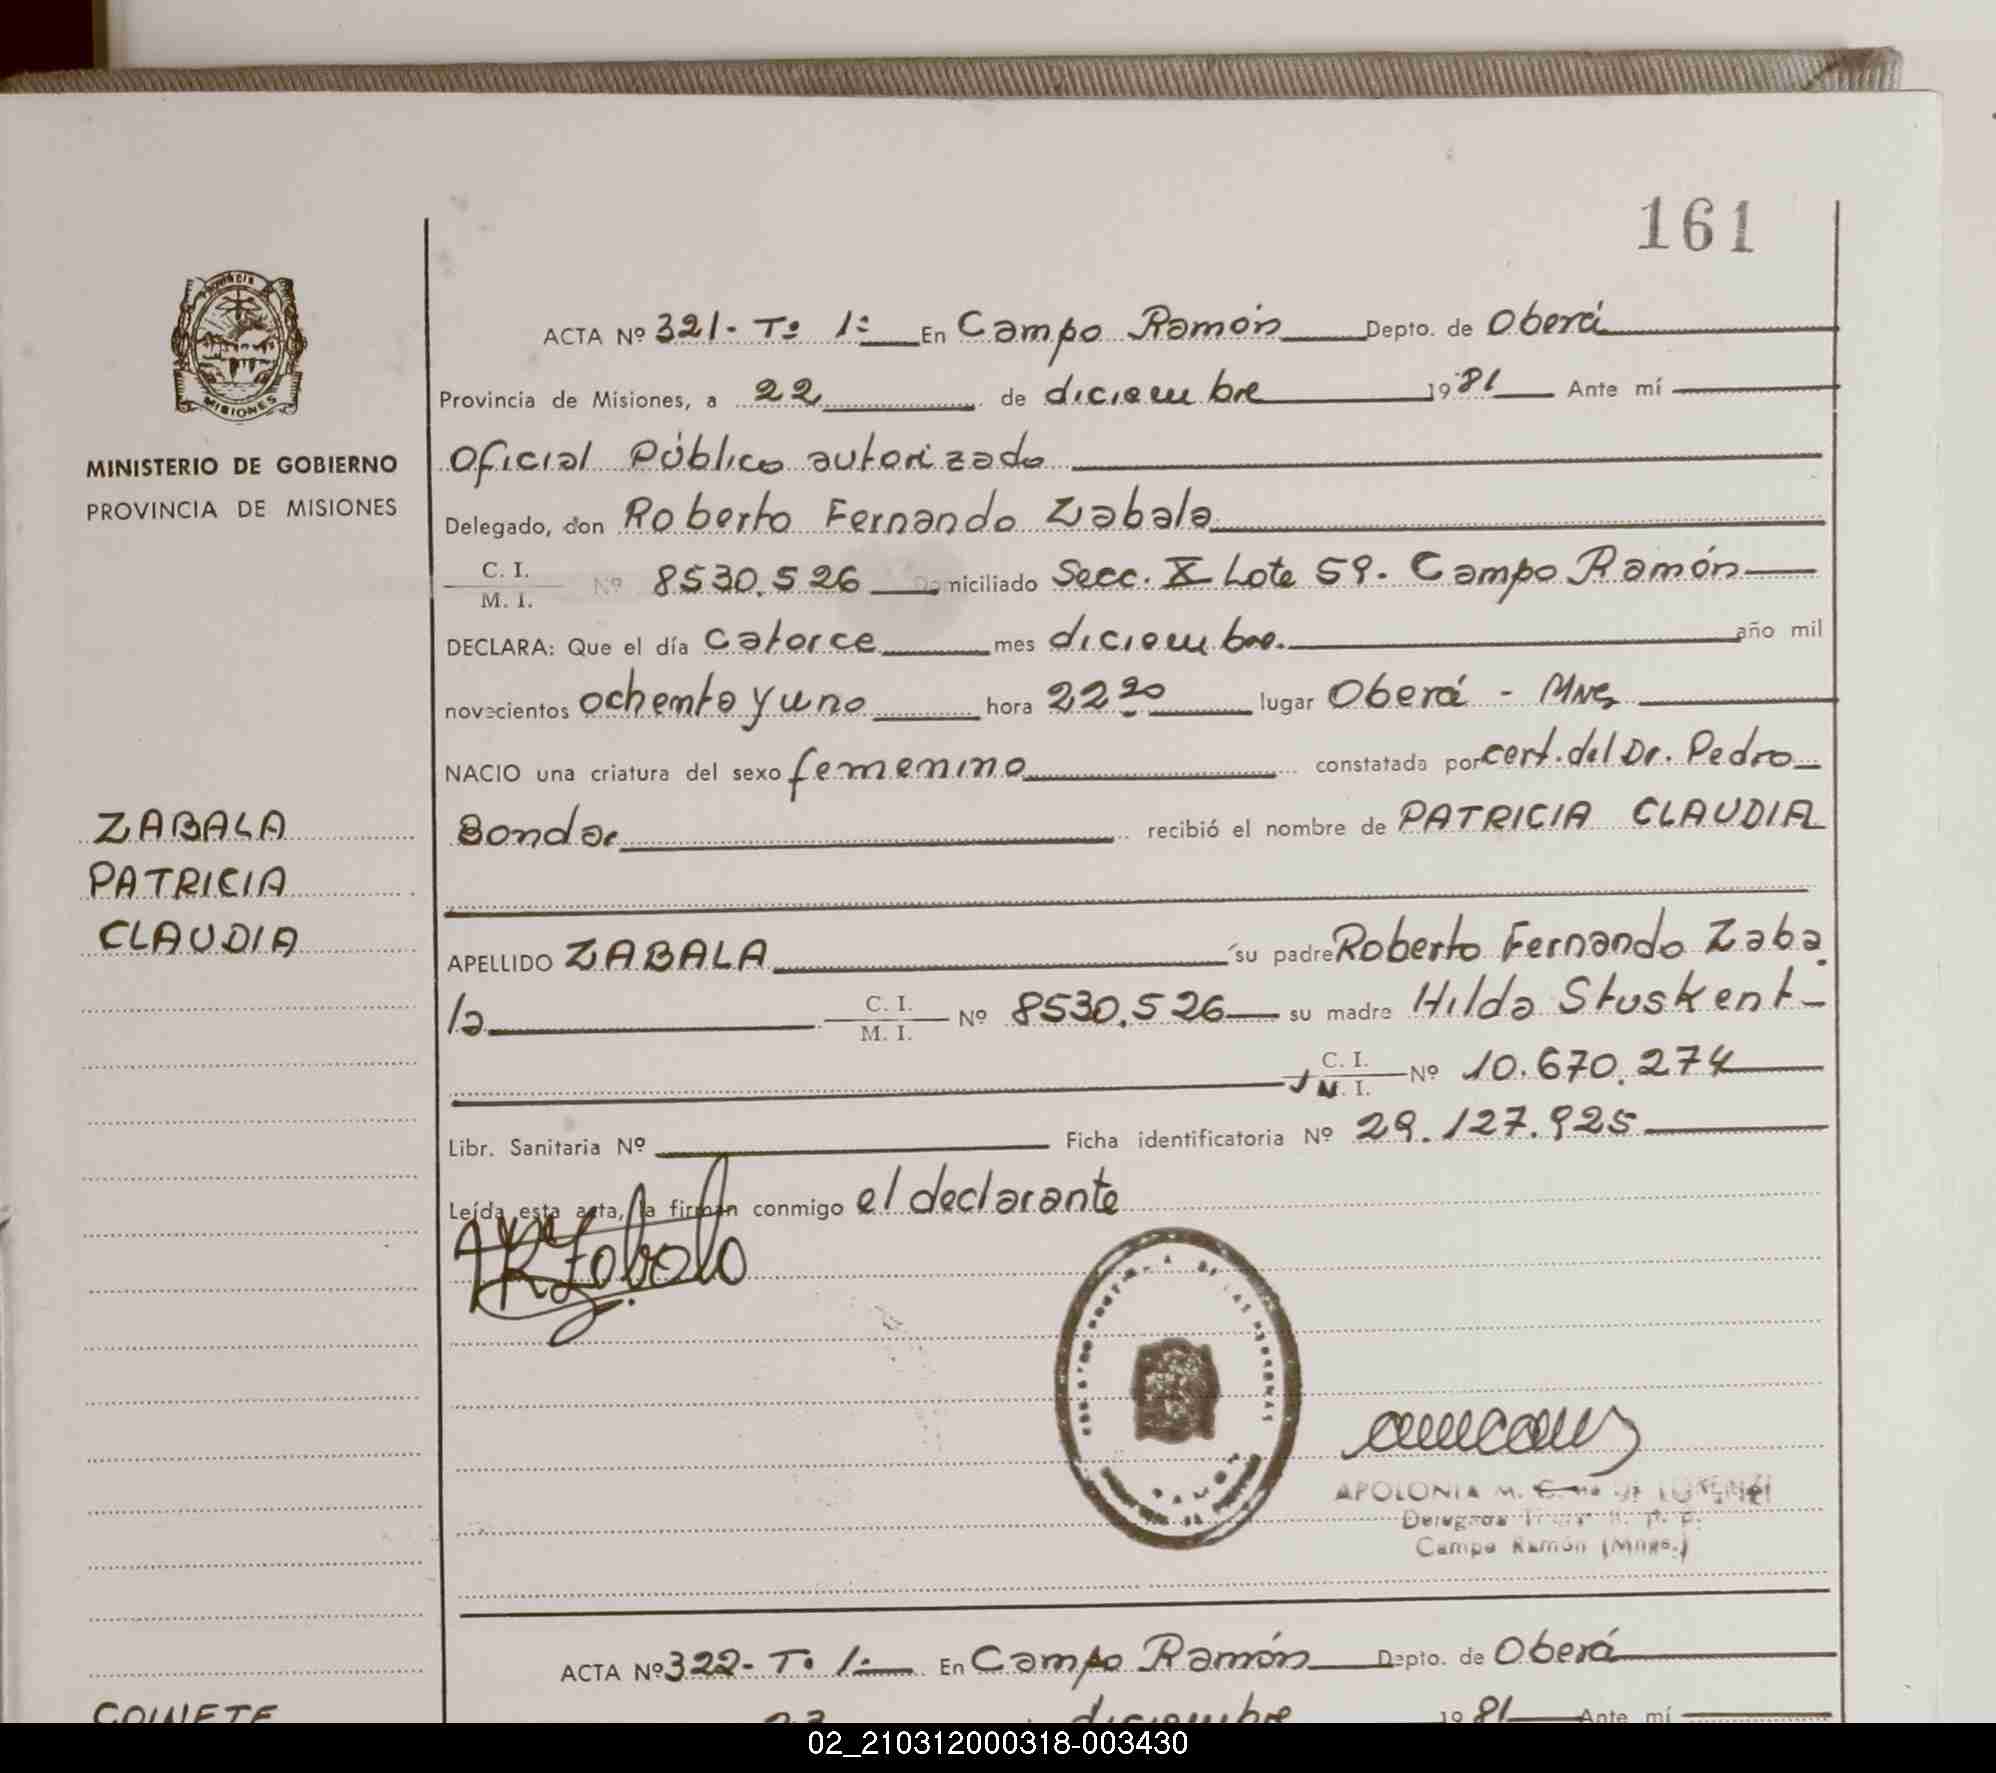 161
Provincia
MISIONES
MINISTERIO DE GOBIERNO
PROVINCIA DE MISIONES
ZABALA
PATRICIA
CLAUDIA
ACTA Nº 321- Tº 1: En Campo Ramón Depto. de Oberá
Provincia de Misiones, a 22 de diciembre 1981 Ante mí
Oficial Público autorizado
Delegado, don Roberto Fernando Zabala
C. I.
M. I. Nº 8530.526 Domiciliado Secc. X Lote 59. Campo Ramón
DECLARA: Que el día catorce mes diciembre. año mil
novecientos ochenta y uno hora 22 20 lugar Oberá - Mnes
NACIO una criatura del sexo femenino constatada por cert. del Dr. Pedro
Bondar recibió el nombre de PATRICIA CLAUDIA
APELLIDO ZABALA su padre Roberto Fernando Zaba
la C. I.
M. I. Nº 8530.526 su madre Hilda Stuskent
C. I.
M. I. Nº 10.670.274
Libr. Sanitaria Nº Ficha identificatoria Nº 29.127.925
Leída esta acta, la firman conmigo el declarante
RZabala
APOLONIA M. de
Campo Ramón (Mnes.)
ACTA Nº 322- Tº 1: En Campo Ramón Depto. de Oberá
23 diciembre 1981 Ante mí
02_210312000318-003430